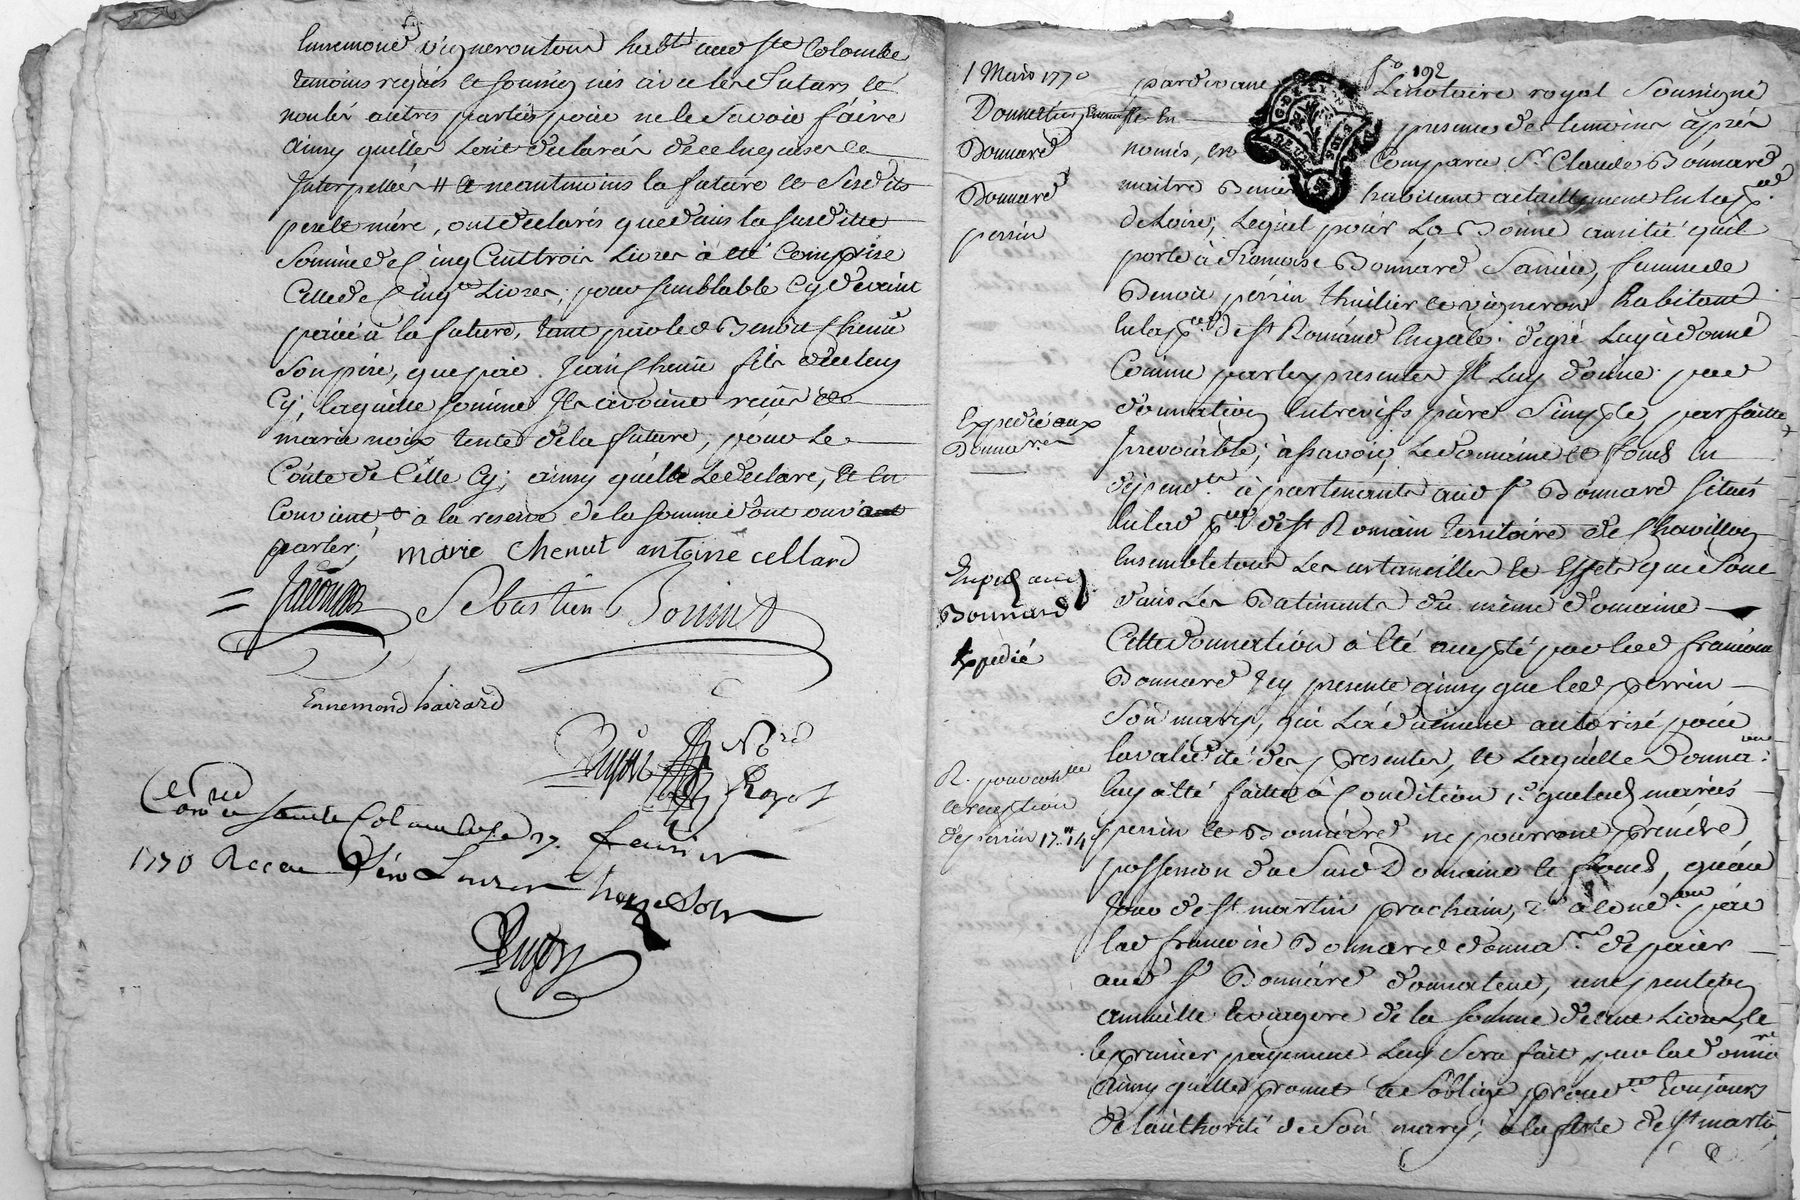 vignerons tous habts aud Ste Colombe
temoins requis et soussignés avec les futurs et
non les autres parties pour ne le savoir faire
ainsy quelles l'ont declarés de ce enquises et
Interpellés # et neantmoins la future et sesdits
pere et mere, ont declarés que dans la susditte
somme de Cinq Cent trois Livres à été Comprise
Celle de Cinq Livres, pour semblable Cy devant
paiée à la future, tant par led Benoit Chenu
son pere, que par Jean Chenu fils dicelluy
Cy, laquelle somme Ils avoient reçus de
marie noix tente de la future, pour le
Conte de Celle Cy, ainsy quelle le declare, et en
Convient # a la reserve de la somme dont on vient
parler,
marie chenut antoine cellard
Sebastien
Ennemond bairard
Pupier
Sainte Colombe le 27. fevrier
1770 Receu
1 Mars 1770
Donnation
Bonnard
Bonnard
perrin
Expedié aux
Donnares
Bonnard
Expedié
de perrin
fo 192
pardevant Le notaire royal soussigné
presence des temoins après
nommés, est Comparu Sr. Claude Bonnard
maitre habitant actuellement en la
de Loire, Lequel pour La Bonne amitié quil
porte à Francoise Bonnard sa niéce, femme de
Benoit perrin thuilier et vigneron habitant
en la psse de St Romain en gale. de gré Luy à donné
Comme par les presentes Il Luy donne par
donnation entrevifs pure Simple, parfaitte
Irrevocable, à sçavoir, Le domaine et fonds en
dépendts. apartenants aud sr Bonnard situés
en lad psse de St Romain territoire de Chavillon
Ensemble tous Les ustancilles et Effets qui sont
dans Les Batiments du même domaine
Cette donnation à été acepté par lad francoise
Bonnard Icy presente ainsy que led perrin
son mary, qui L'à duement autorisé pour
la validité des presentes, et Laquelle donnaon
luy a été faitte à Condition 1°. que lesd mariés
perrin et Bonnard ne pourront prendre
possession du susd Domaine et fonds, qu'au
Jour de St martin prochain, 2°. par
lad francoise Bonnard donnare. de païer
aud sr Bonnard donnateur, une pention
annuelle et viagere de la somme de cent Livres, et
le premier payement Luy sera fait par lad donnre
ainsy quelle promet et s'oblige toujours
de l'authorité de son mary, à la fete de St martin